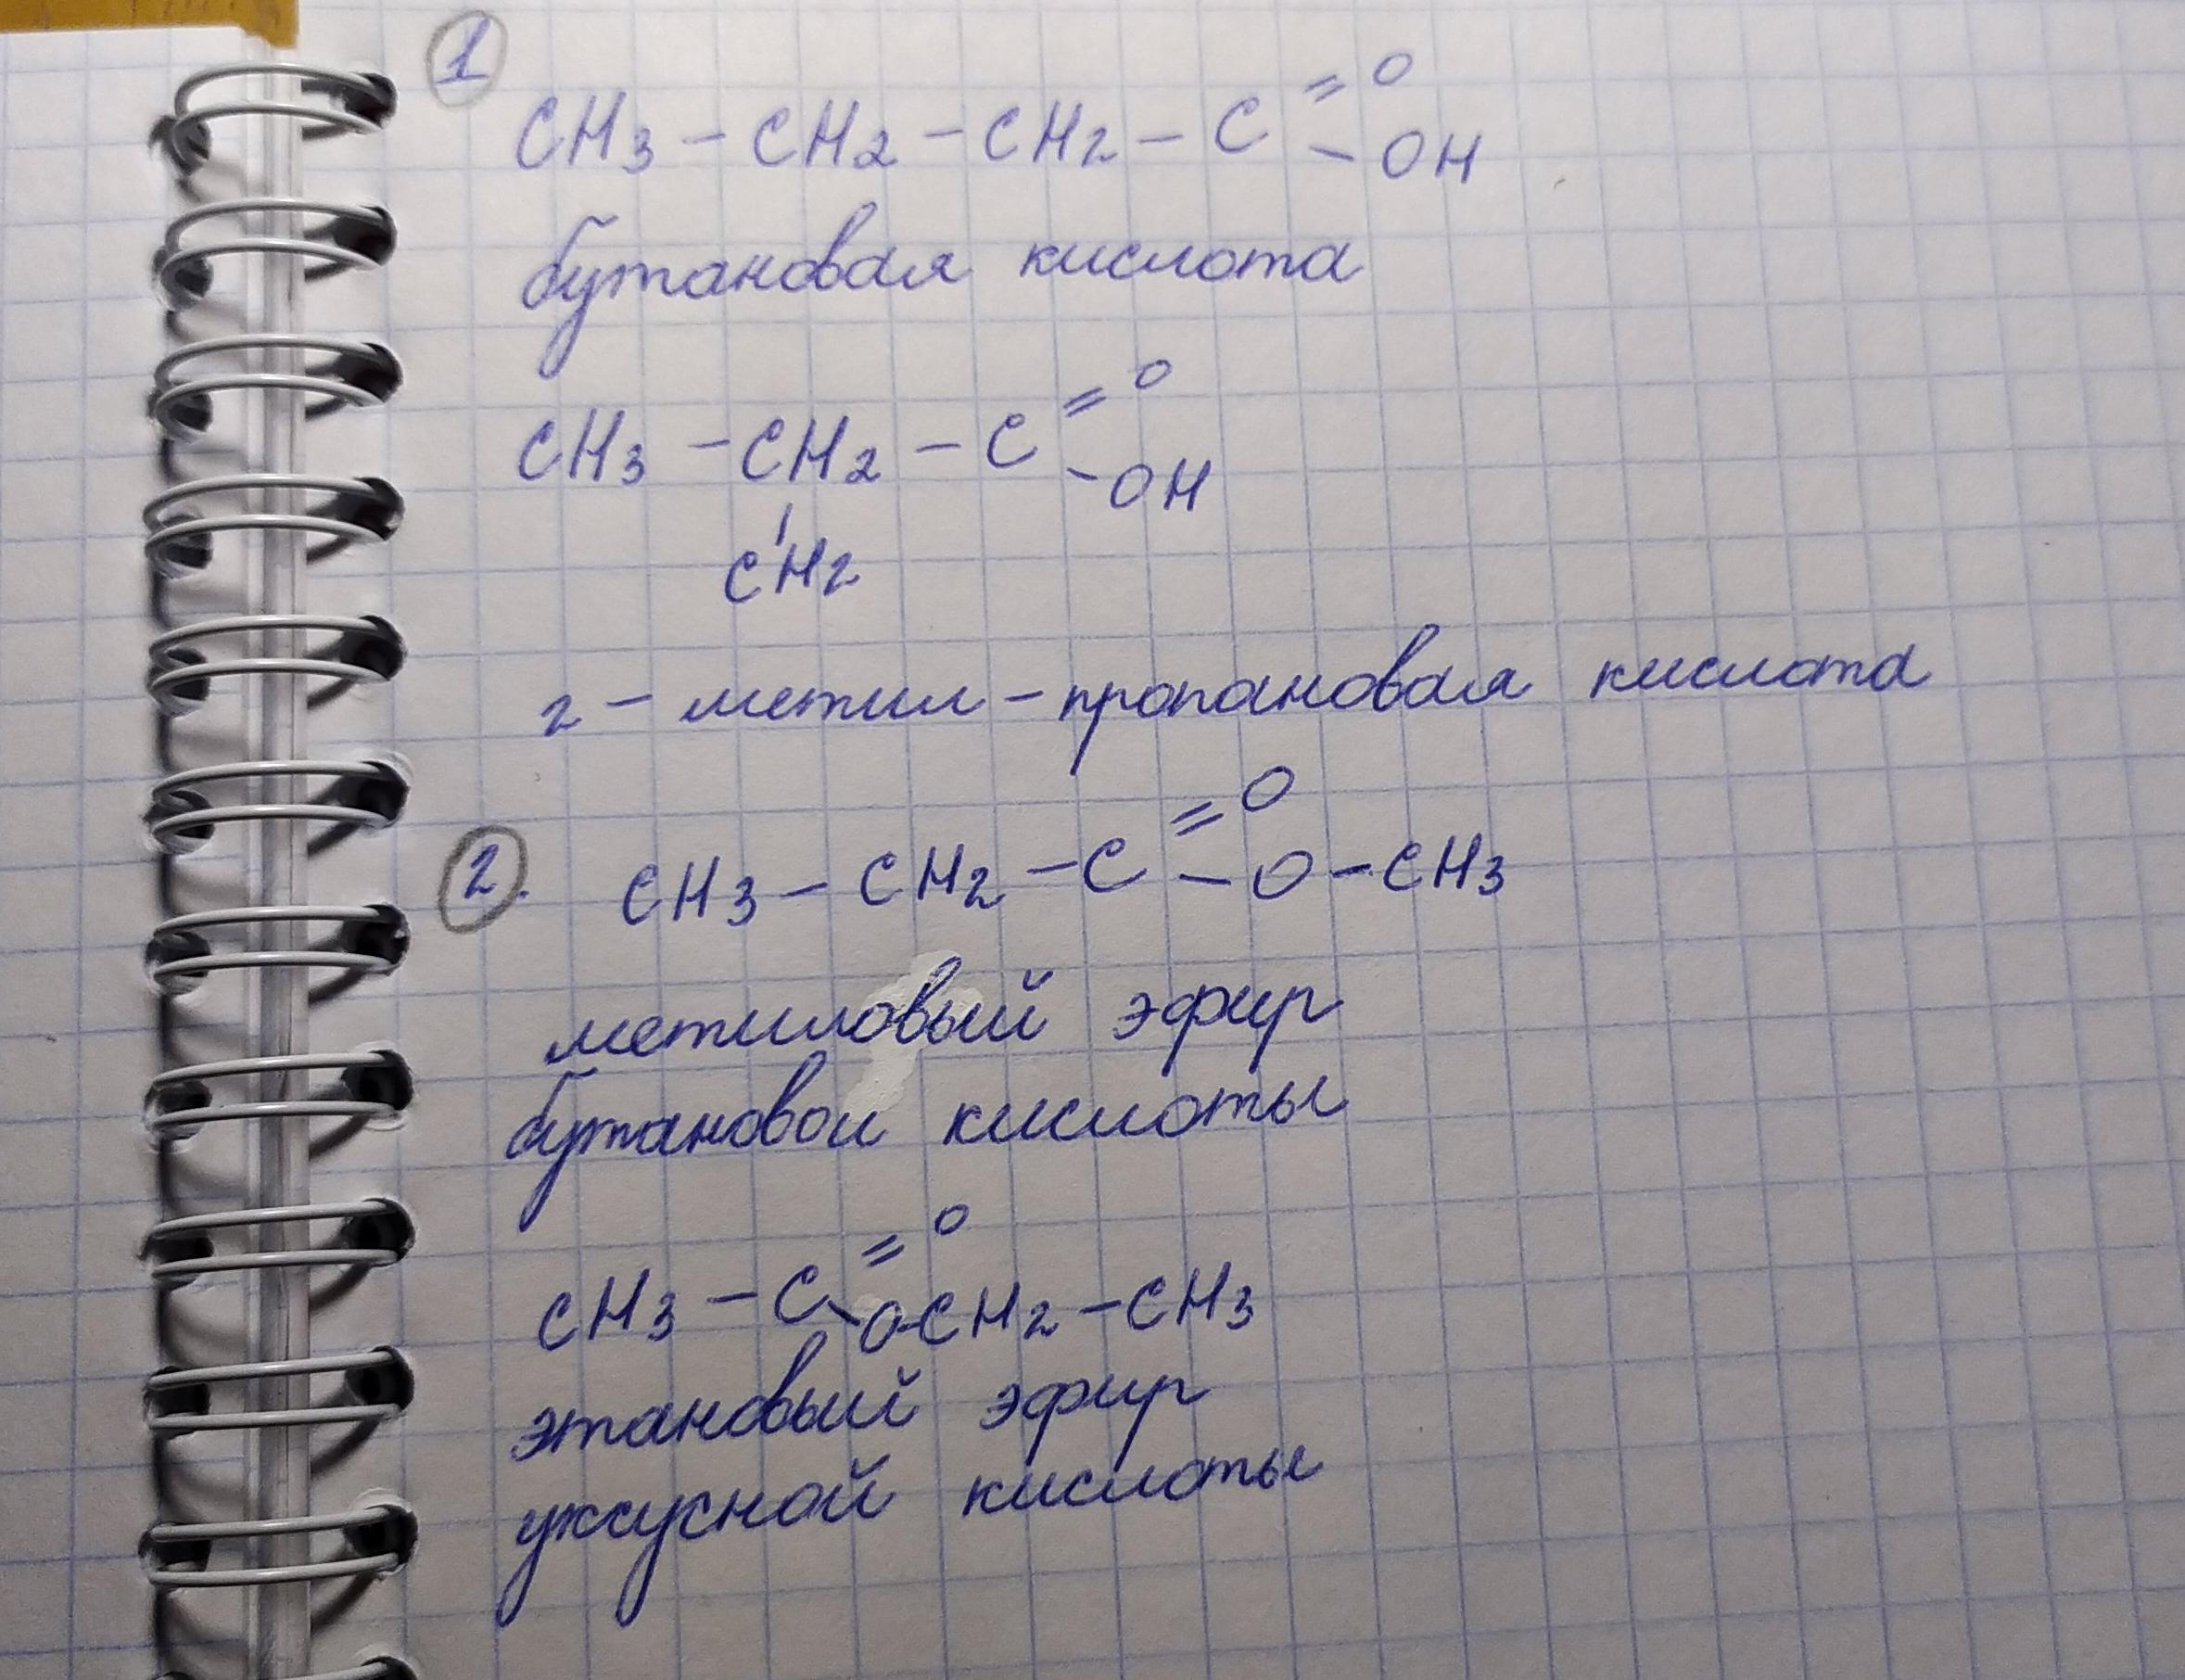 1
CH3 – CH2 – CH2 – C = O – OH
бутановая кислота
CH3 – CH2 – C = O – OH
CH2
2 – метил – пропановая кислота
2. CH3 – CH2 – C = O – O – CH3
метиловый эфир
бутановои кислоты
CH3 – C = O – O – CH2 – CH3
этановый эфир
уксусной кислоты